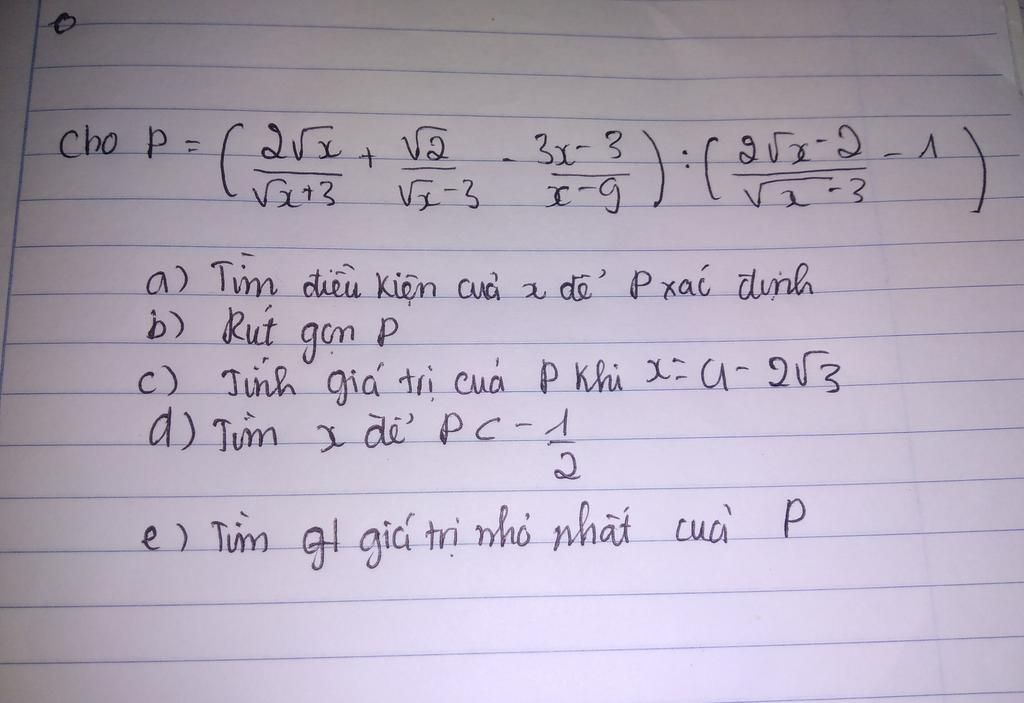 Cho P = ( 2√x / √x+3 + √2 / √x-3 - 3x-3 / x-9 ) : ( 2√x-2 / √x-3 - 1 )
a) Tìm điều kiện của x để P xác định
b) Rút gọn P
c) Tính giá trị của P khi x = 4 - 2√3
d) Tìm x để P < - 1/2
e) Tìm giá trị nhỏ nhất của P